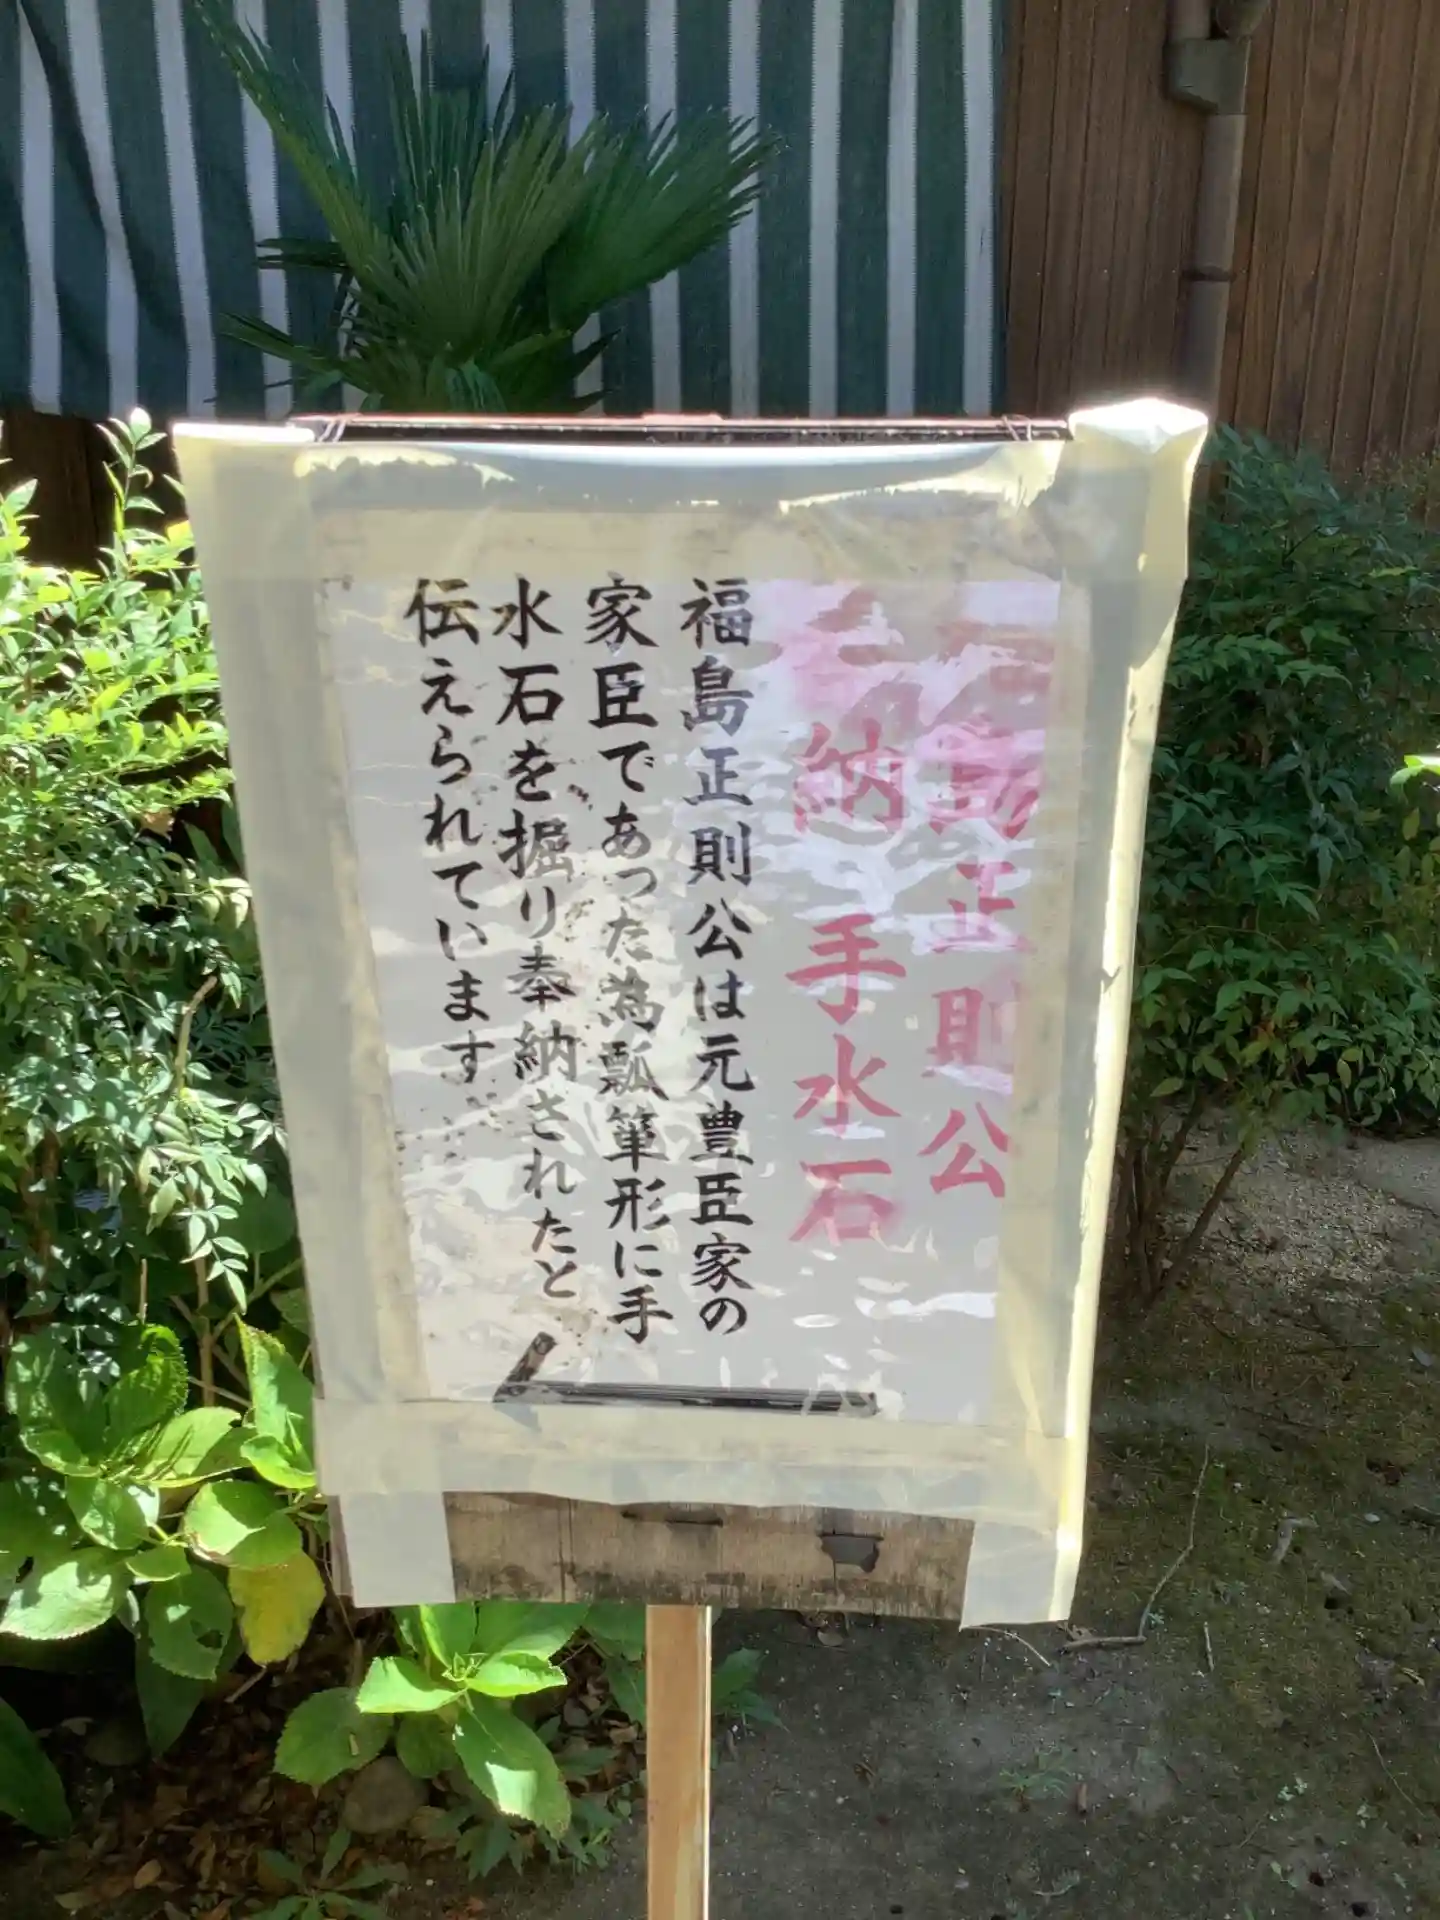 島正則公
納手水石
福島正則公は元豊臣家の
家臣であった為瓢箪形に手
水石を掘り奉納されたと
伝えられています